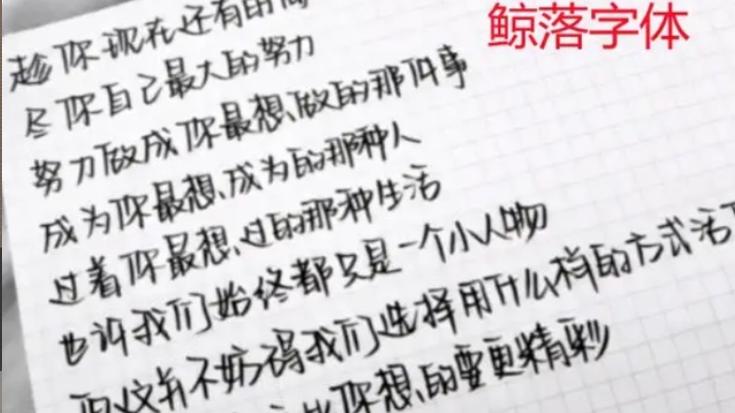 鲸落字体
趁你现在还有时间
尽你自己最大的努力
努力做成你最想做的那件事
成为你最想成为的那种人
过着你最想过的那种生活
也许我们始终都只是一个小人物
但这并不妨碍我们选择用什么样的方式活
你想的要更精彩